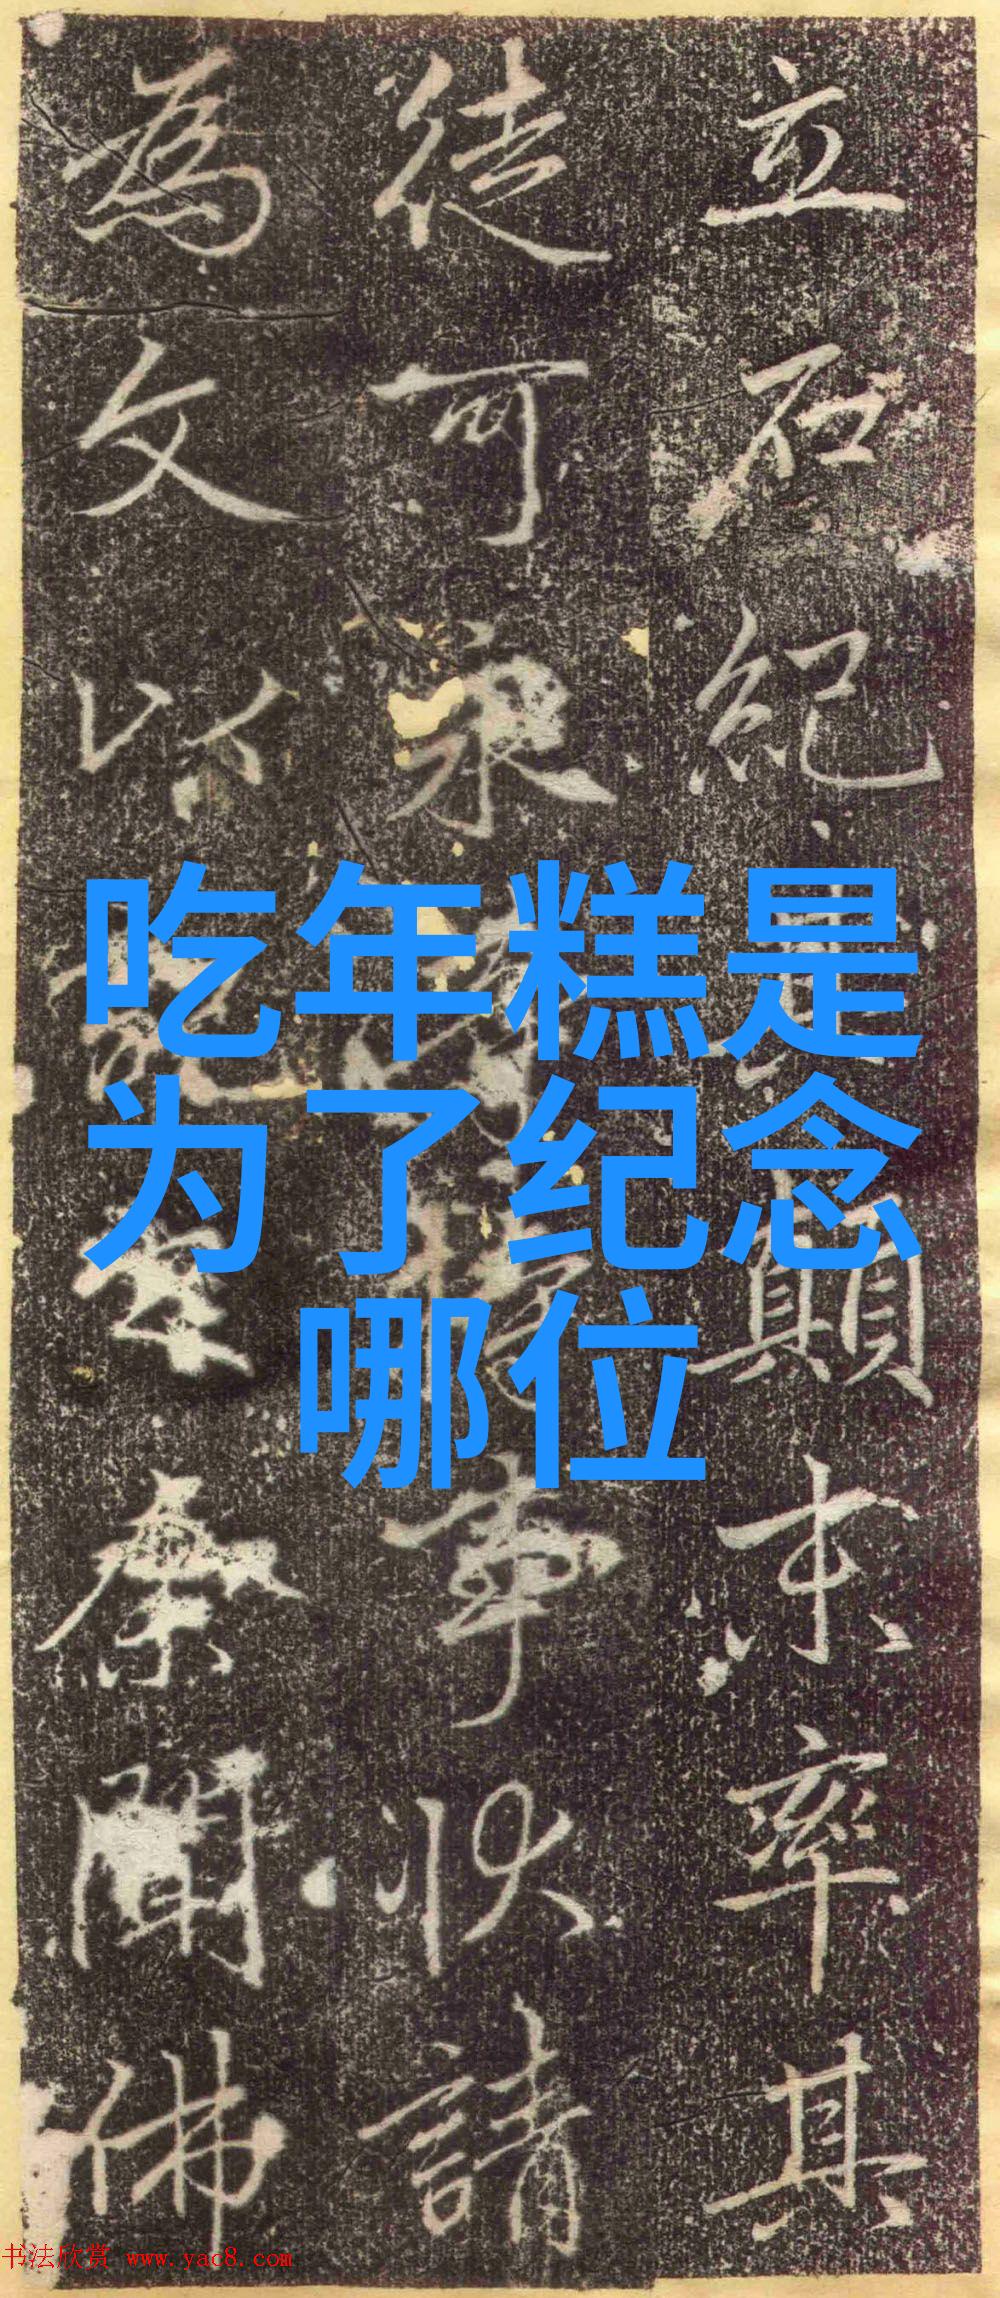 吃年糕是
为了纪念
哪位
立石紀顛末率其
徒可永事狀請
為文以余聞佛
书法欣赏 www.yac8.com